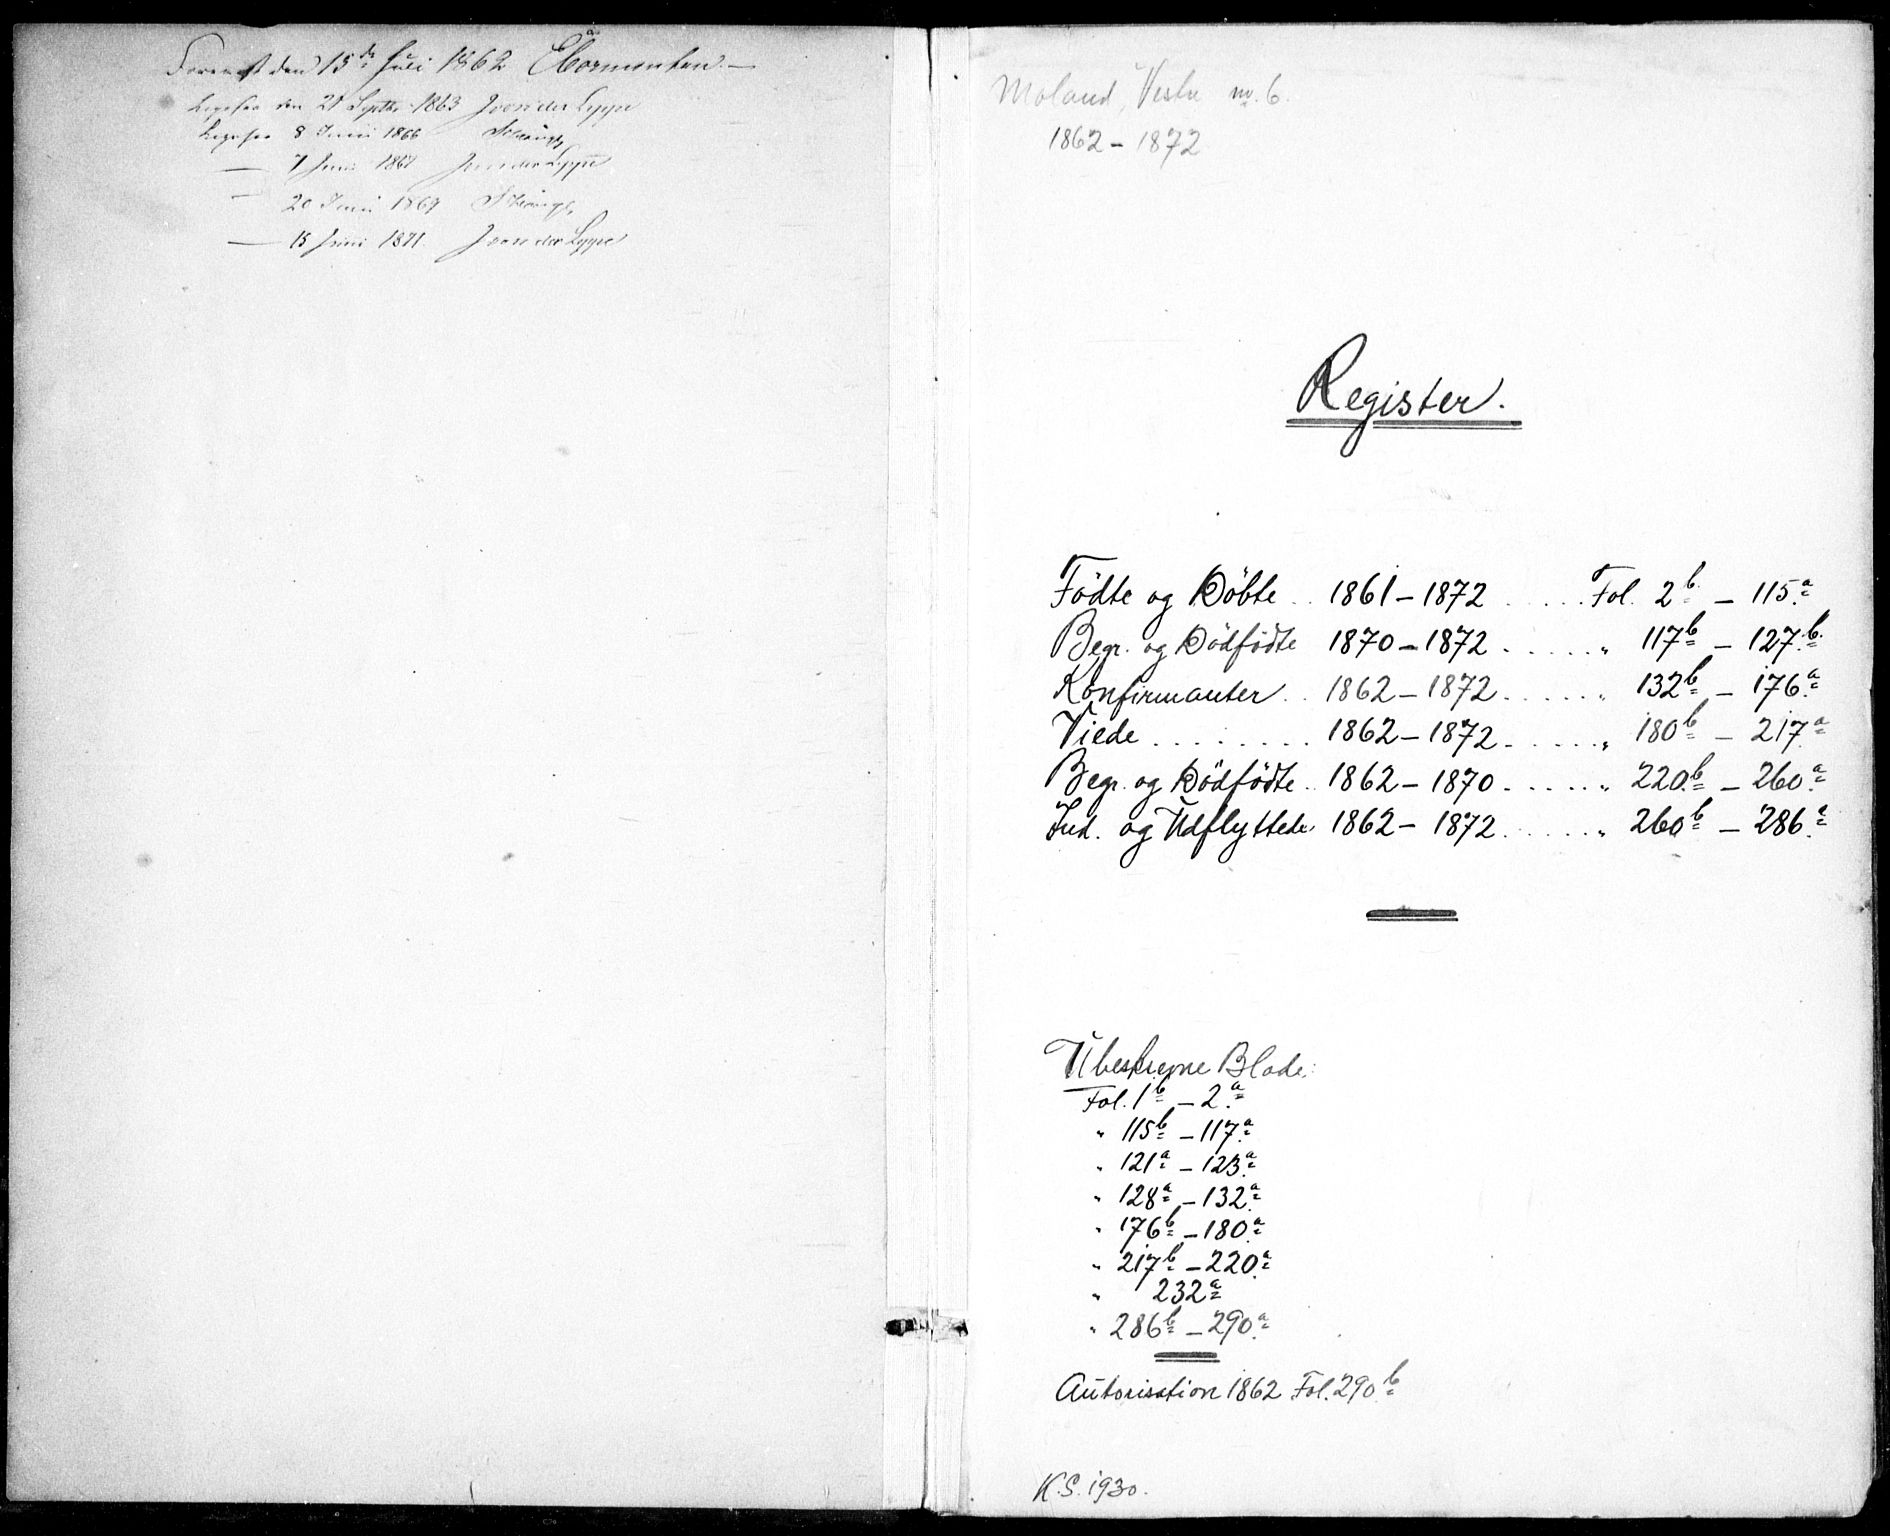 den 15de Juli 1862
den 21 Septbr 1863 J von der Lippe
8 Juni 1866
— 7 Juni J von der Lippe
— 20 Juni 1869
— 15 Juni 1871. J von der Lippe
Moland, Vestre nr. 6.
1862 – 1872
Register.
Födte og Döbte .. 1861 – 1872 ..... Fol. 2b – 115a
Begr. og Dödfödte 1870 – 1872 ..... " 117b – 127b.
Konfirmanter .. 1862 – 1872 ..... " 132b – 176a
Viede ........ 1862 – 1872 ..... " 180b – 217a
Begr. og Dödfödte .. 1862 – 1870 ..... " 220b – 260a
Ind. og Udflyttede 1862 – 1872 ..... " 260b – 286a
Ubeskrevne Blade:
Fol. 1b – 2a
" 115b – 117a
" 121a – 123a
" 128a – 132a
" 176b – 180a
" 217b – 220a
" 232a
" 286b – 290a
Autorisation 1862 Fol. 290b
K.S. 1930.